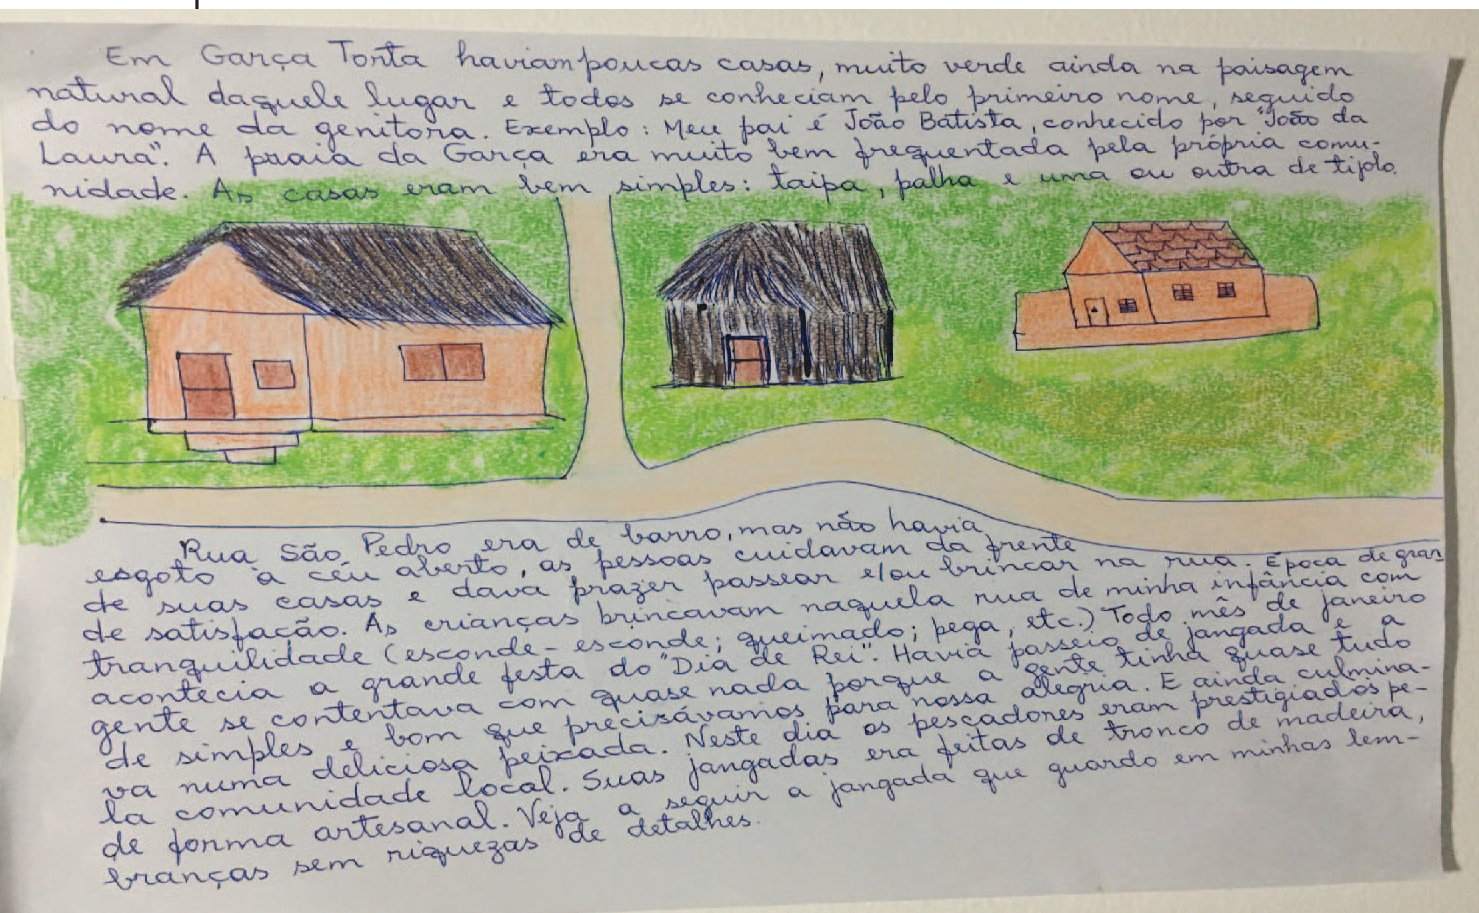 Em Garça Torta haviam poucas casas, muito verde ainda na paisagem
natural daquele lugar e todos se conheciam pelo primeiro nome, seguido
do nome da genitora. Exemplo: Meu pai é João Batista, conhecido por "João da
Laura". A praia da Garça era muito bem frequentada pela própria comu-
nidade. As casas eram bem simples: taipa, palha e uma ou outra de tijolo.
Rua São Pedro era de barro, mas não havia
esgoto à céu aberto, as pessoas cuidavam da frente
de suas casas e dava prazer passear e/ou brincar na rua. Época de gran
de satisfação. As crianças brincavam naquela rua de minha infância com
tranquilidade (esconde-esconde; queimado; pega, etc.) Todo mês de janeiro
acontecia a grande festa do "Dia de Rei". Havia passeio de jangada e a
gente se contentava com quase nada porque a gente tinha quase tudo
de simples e bom que precisávamos para nossa alegria. E ainda culmina-
va numa deliciosa peixada. Neste dia os pescadores eram prestigiados pe-
la comunidade local. Suas jangadas era feitas de tronco de madeira,
de forma artesanal. Veja a seguir a jangada que guardo em minhas lem-
branças sem riquezas de detalhes.